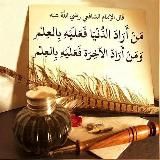 قال الإمام الشافعي رضي الله عنه
مَنْ أَرَادَ الدُّنْيَا فَعَلَيْهِ بِالعِلْمِ
وَمَنْ أَرَادَ الآخِرَةَ فَعَلَيْهِ بِالعِلْمِ